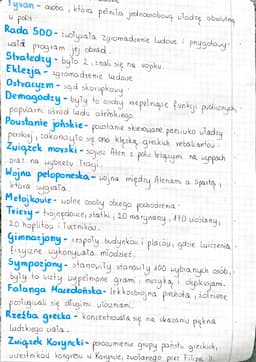 Tyran - osoba, która pełniła jednoosobową władzę absolutną
w polis
Rada 500 - zwoływała zgromadzenie ludowe i przygotowy-
wała program jej obrad.
Stratedzy - było 2, znali się na wojsku.
Eklezja - zgromadzenie ludowe
Ostracyzm - sąd skorupkowy
Demagodzy - były to osoby niepełniące funkcji publicznych,
popularni wśród ludu ateńskiego.
Powstanie jońskie - powstanie skierowane przeciwko władzy
perskiej, zakończyło się ono klęską greckich rebeliantów.
Związek morski - sojusz Aten z polis leżącymi na wyspach
oraz na wybrzeżu Tracji.
Wojna peloponeska - wojna między Atenami a Spartą,
którą wygrała.
Metojkowie - wolne osoby obcego pochodzenia.
Triery - trójrzędowce, statki, 20 marynarzy, 170 wioślarzy,
20 hoplitów i łuczników.
Gimnazjony - zespoły budynków i placów, gdzie ćwiczenia
fizyczne wykonywała młodzież.
Sympozjony - stanowiły stanowiły 100 wybranych osób,
były to uczty wypełnione grami, muzyką i dyskusjami.
Falanga Macedońska - lekkozbrojna piechota, żołnierze
posługiwali się długimi włóczniami.
Rzeźba grecka - koncentrowała się na ukazaniu piękna
ludzkiego ciała.
Związek Koryncki - porozumienie grupy państw greckich,
uczestników kongresu w Koryncie, zwołanego przez Filipa II